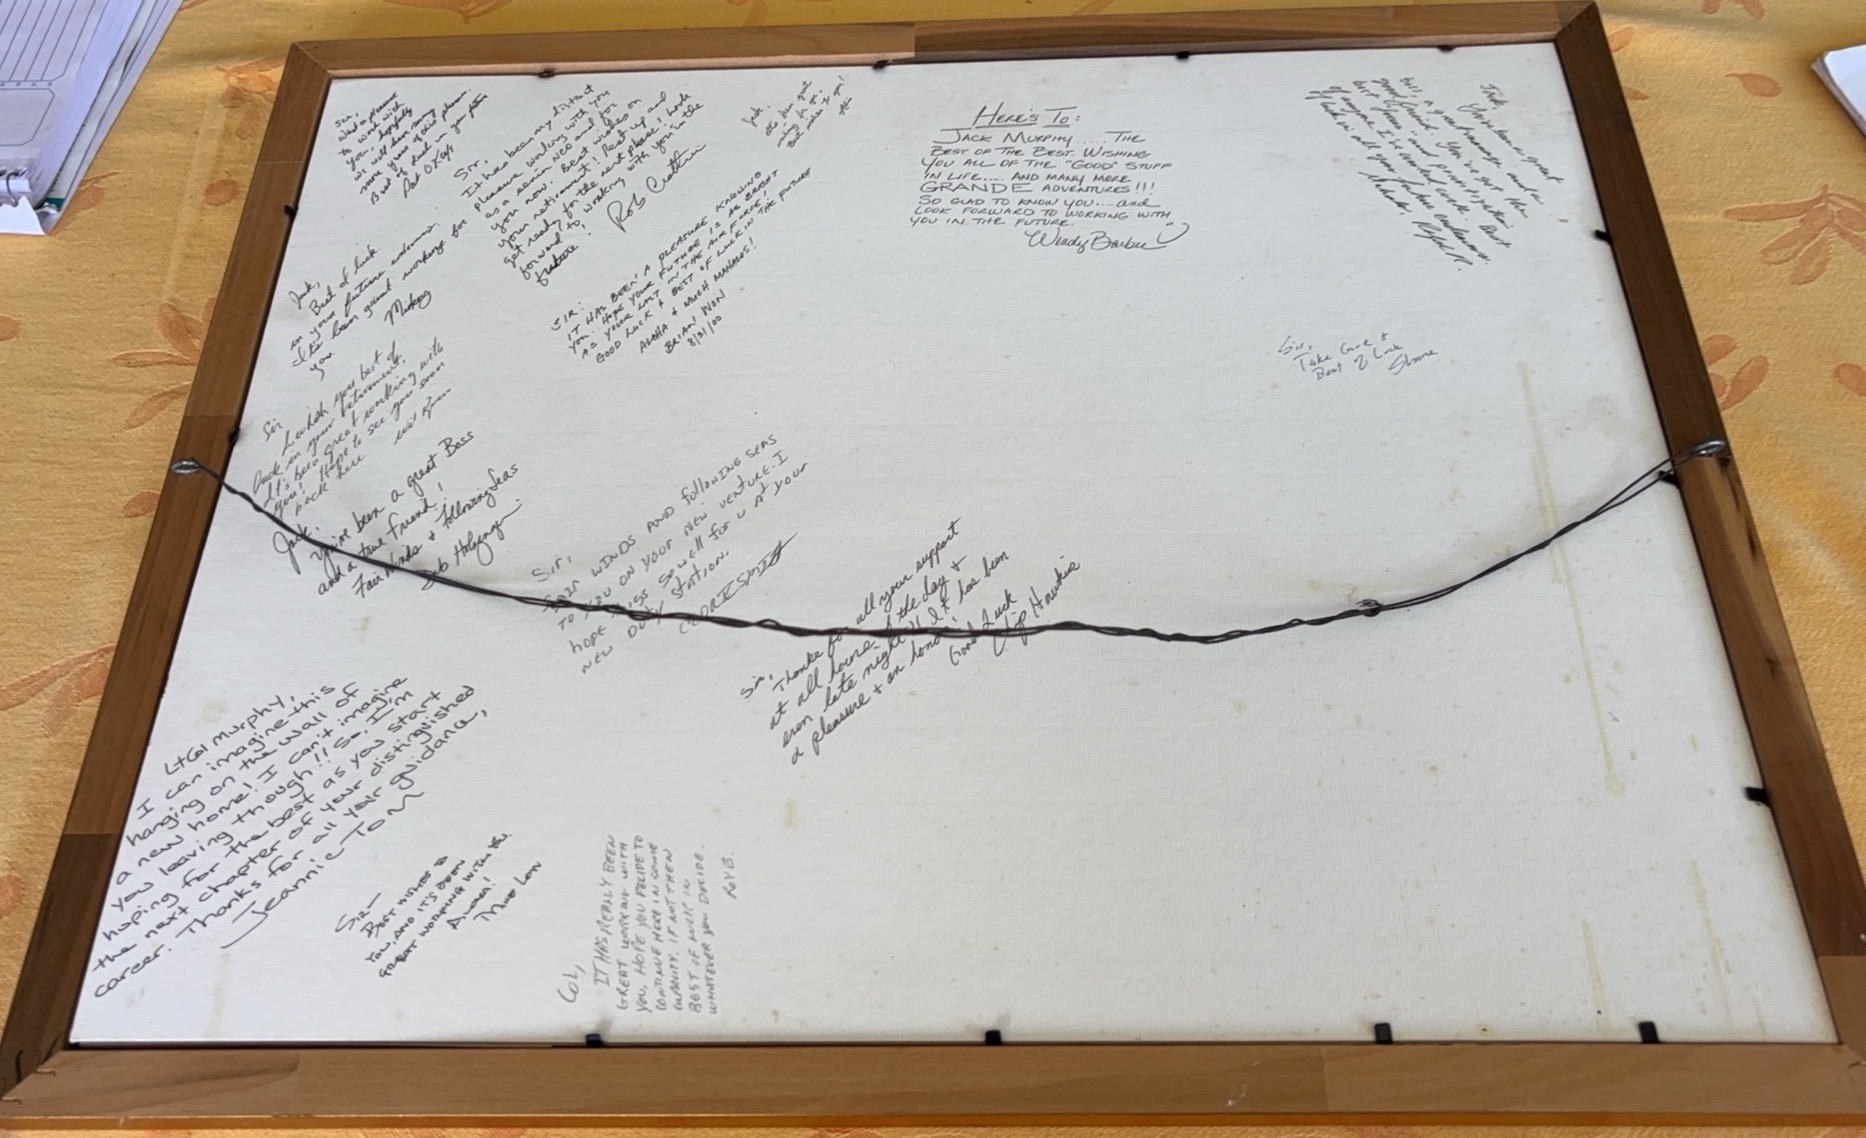 Sir,
What a pleasure
to work with
you, hopefully
we will have many
more years of this pleasure.
Best of luck in your future
Pat O'Kays
Sir,
It has been my distinct
pleasure working with you
as a senior NCO and for
you now. Best wishes on
your retirement! Rest up and
get ready for the next phase! Look
forward to working with you in the
future!
Rob
Jack,
Best of luck
in your future endeavors
It's been great working for
you.
Mickey
SIR:
IT HAS BEEN A PLEASURE KNOWING
YOU. HOPE YOUR FUTURE IS AS BRIGHT
AS YOUR LAST IN THE AIR FORCE!
GOOD LUCK & BEST OF LUCK IN THE FUTURE
ALOHA & MUCH MAHALOS!
BRIAN WON
8/31/00
Jack.
HERE'S TO:
JACK MURPHY..... THE
BEST OF THE BEST. WISHING
YOU ALL OF THE "GOOD" STUFF
IN LIFE.... AND MANY MORE
GRANDE ADVENTURES!!!
SO GLAD TO KNOW YOU....and
LOOK FORWARD TO WORKING WITH
YOU IN THE FUTURE.
Wendy Barbee
Jack
You've been a great
boss, a great manager and a
good friend. You've got the
best and prioritization
of anyone I've worked with. Best
of luck in all your future endeavors.
Mahalo,
Sir,
Take Care &
Best of Luck
Shane
Sir
I wish you best of
luck in your retirement.
It's been great working with
you! Hope to see you soon
back here
Jack,
You've been a great Boss
and a true friend!
Fair Winds & Following Seas
Deb
Sir,
FAIR WINDS AND FOLLOWING SEAS
TO YOU ON YOUR NEW VENTURE. I
HOPE THIS SEW ELL FOR U AT YOUR
NEW DUTY STATION.
Sir,
Thanks for all your support
at all hours of the day &
even late night!! It has been
a pleasure & an honor!
Good Luck
Chip Hawkins
LtCol Murphy,
I can imagine this
hanging on the wall of
a new home! I can't imagine
you leaving though!! So, I'm
hoping for the best as you start
the next chapter of your distinguished
career. Thanks for all your guidance,
Jeannie Tom
SIR-
BEST WISHES TO
YOU, AND IT'S BEEN
GREAT WORKING WITH YOU.
ALOHA!
COL,
IT HAS REALLY BEEN
GREAT WORKING WITH
YOU, HOPE YOU DECIDE TO
CONTINUE HERE IN SOME
CAPACITY. IF NOT THEN
BEST OF LUCK IN
WHATEVER YOU DECIDE.
ROY B.